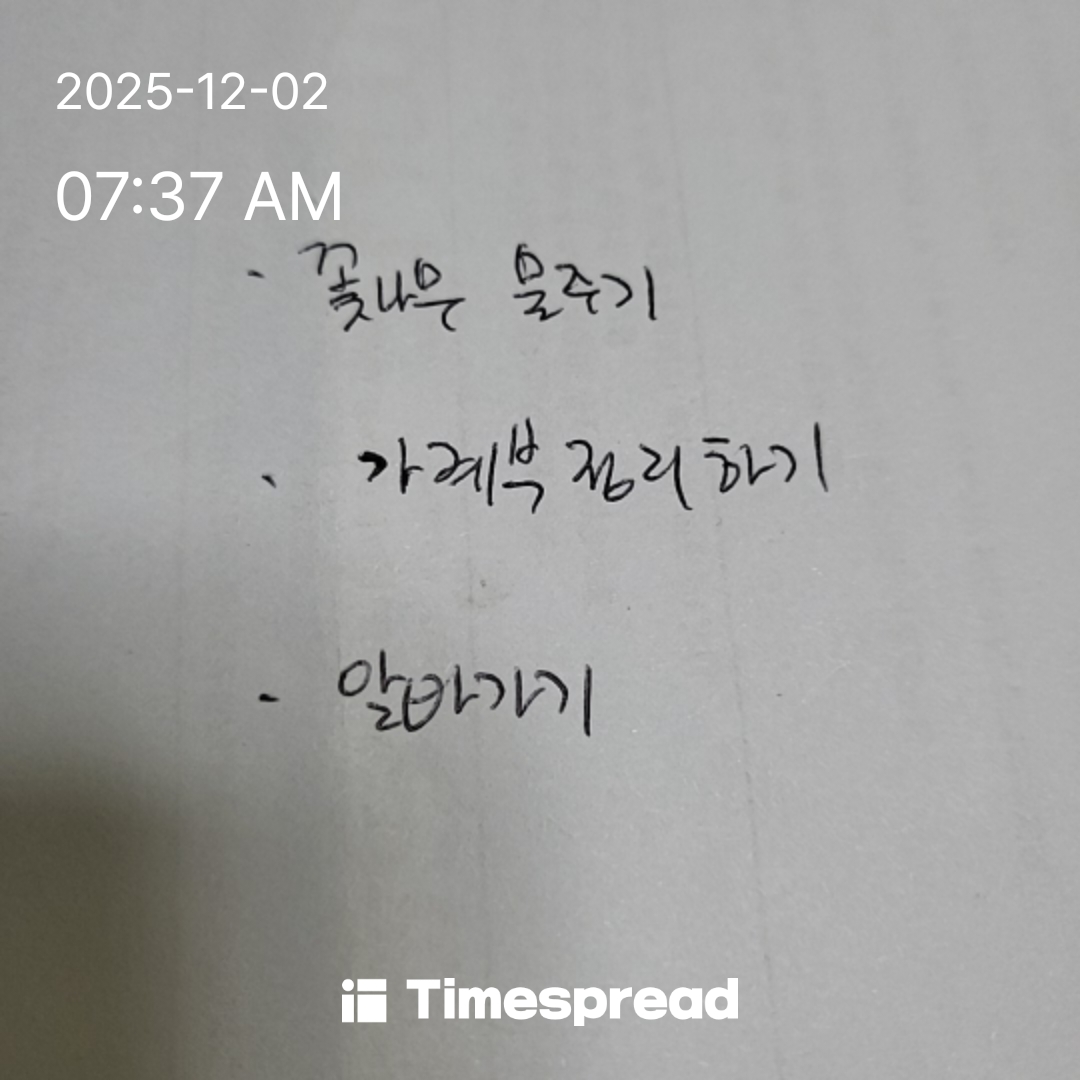 2025-12-02
07:37 AM
· 꽃나무 물주기
· 가계부 정리하기
- 알바가기
Timespread